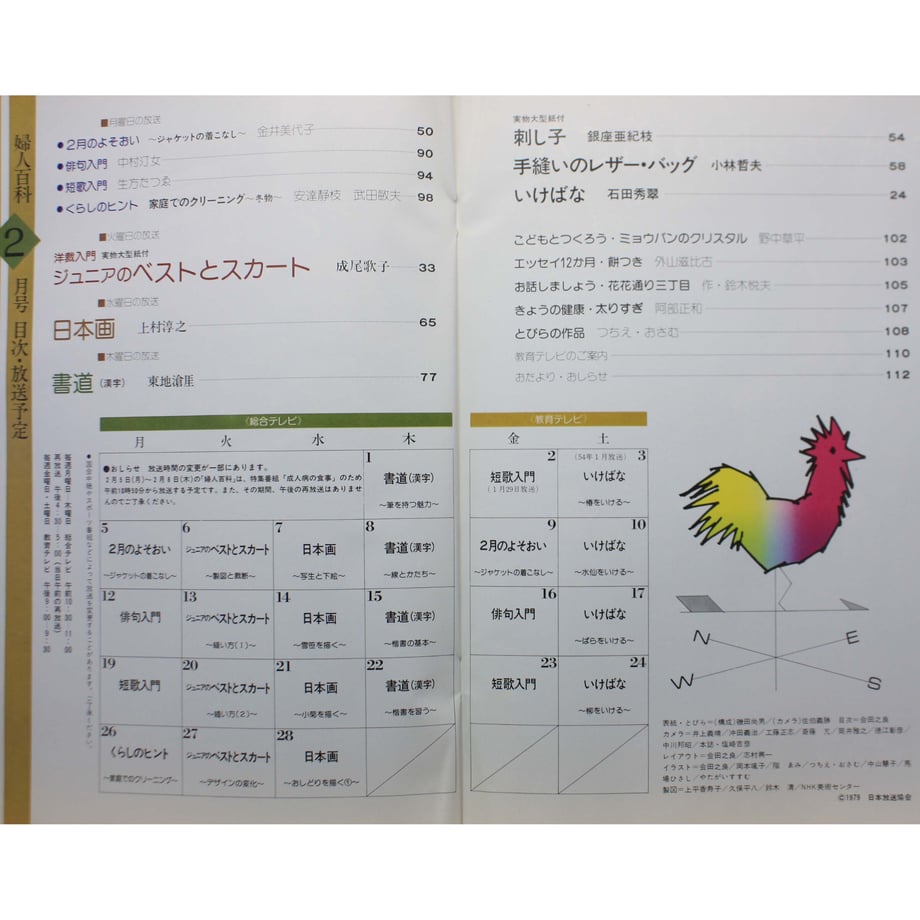 婦人百科
2
月号 目次・放送予定
■月曜日の放送
●2月のよそおい 〜ジャケットの着こなし〜 金井美代子 50
●俳句入門 中村汀女 90
●短歌入門 生方たつゑ 94
●くらしのヒント 家庭でのクリーニング〜冬物〜 安達静枝 武田敏夫 98
■火曜日の放送
洋裁入門 実物大型紙付
ジュニアのベストとスカート 成尾歌子 33
■水曜日の放送
日本画 上村淳之 65
■木曜日の放送
書道(漢字) 東地滄厓 77
実物大型紙付
刺し子 銀座亜紀枝 54
手縫いのレザー・バッグ 小林哲夫 58
いけばな 石田秀翠 24
こどもとつくろう・ミョウバンのクリスタル 野中草平 102
エッセイ12か月・餅つき 外山滋比古 103
お話しましょう・花花通り三丁目 作・鈴木悦夫 105
きょうの健康・太りすぎ 阿部正和 107
とびらの作品 つちえ・おさむ 108
教育テレビのご案内 110
おたより・おしらせ 112
毎週月曜日〜木曜日 総合テレビ 午前10:30〜11:00
再放送 午後4:30〜5:00(当日午前の再放送)
毎週金曜日・土曜日 教育テレビ 午後9:00〜9:30
●国会中継やスポーツ番組などによって放送を変更することがあります。ご了承ください。
〈総合テレビ〉
月 火 水 木
●おしらせ 放送時間の変更が一部にあります。
2月5日(月)〜2月8日(木)の「婦人百科」は、特集番組「成人病の食事」のため
午前10時50分から放送する予定です。また、その期間、午後の再放送はありませ
んのでご了承ください。
1 書道(漢字) 〜筆を持つ魅力〜
5 2月のよそおい 〜ジャケットの着こなし〜
6 ジュニアのベストとスカート 〜製図と裁断〜
7 日本画 〜写生と下絵〜
8 書道(漢字) 〜線とかたち〜
12 俳句入門
13 ジュニアのベストとスカート 〜縫い方(1)〜
14 日本画 〜雪笹を描く〜
15 書道(漢字) 〜楷書の基本〜
19 短歌入門
20 ジュニアのベストとスカート 〜縫い方(2)〜
21 日本画 〜小菊を描く〜
22 書道(漢字) 〜楷書を習う〜
26 くらしのヒント 〜家庭でのクリーニング〜
27 ジュニアのベストとスカート 〜デザインの変化〜
28 日本画 〜おしどりを描く①〜
〈教育テレビ〉
金 土
2 短歌入門 (1月29日放送)
(54年1月放送) 3 いけばな 〜椿をいける〜
9 2月のよそおい 〜ジャケットの着こなし〜
10 いけばな 〜水仙をいける〜
16 俳句入門
17 いけばな 〜ばらをいける〜
23 短歌入門
24 いけばな 〜柳をいける〜
N E
W S
表紙・とびら=(構成)磯田尚男/(カメラ)佐伯義勝 目次=会田之良
カメラ=井上義晴/沖田義治/工藤正志/斎藤 元/筒井雅之/徳江彰彦/
中川邦昭/本誌・塩崎吉彦
レイアウト=会田之良/志村泰一
イラスト=会田之良/岡本颯子/階 ゑみ/つちえ・おさむ/中山慧子/馬
場ひさし/やたがいすすむ
製図=上平香寿子/久保平八/鈴木 清/NHK美術センター
©1979 日本放送協会